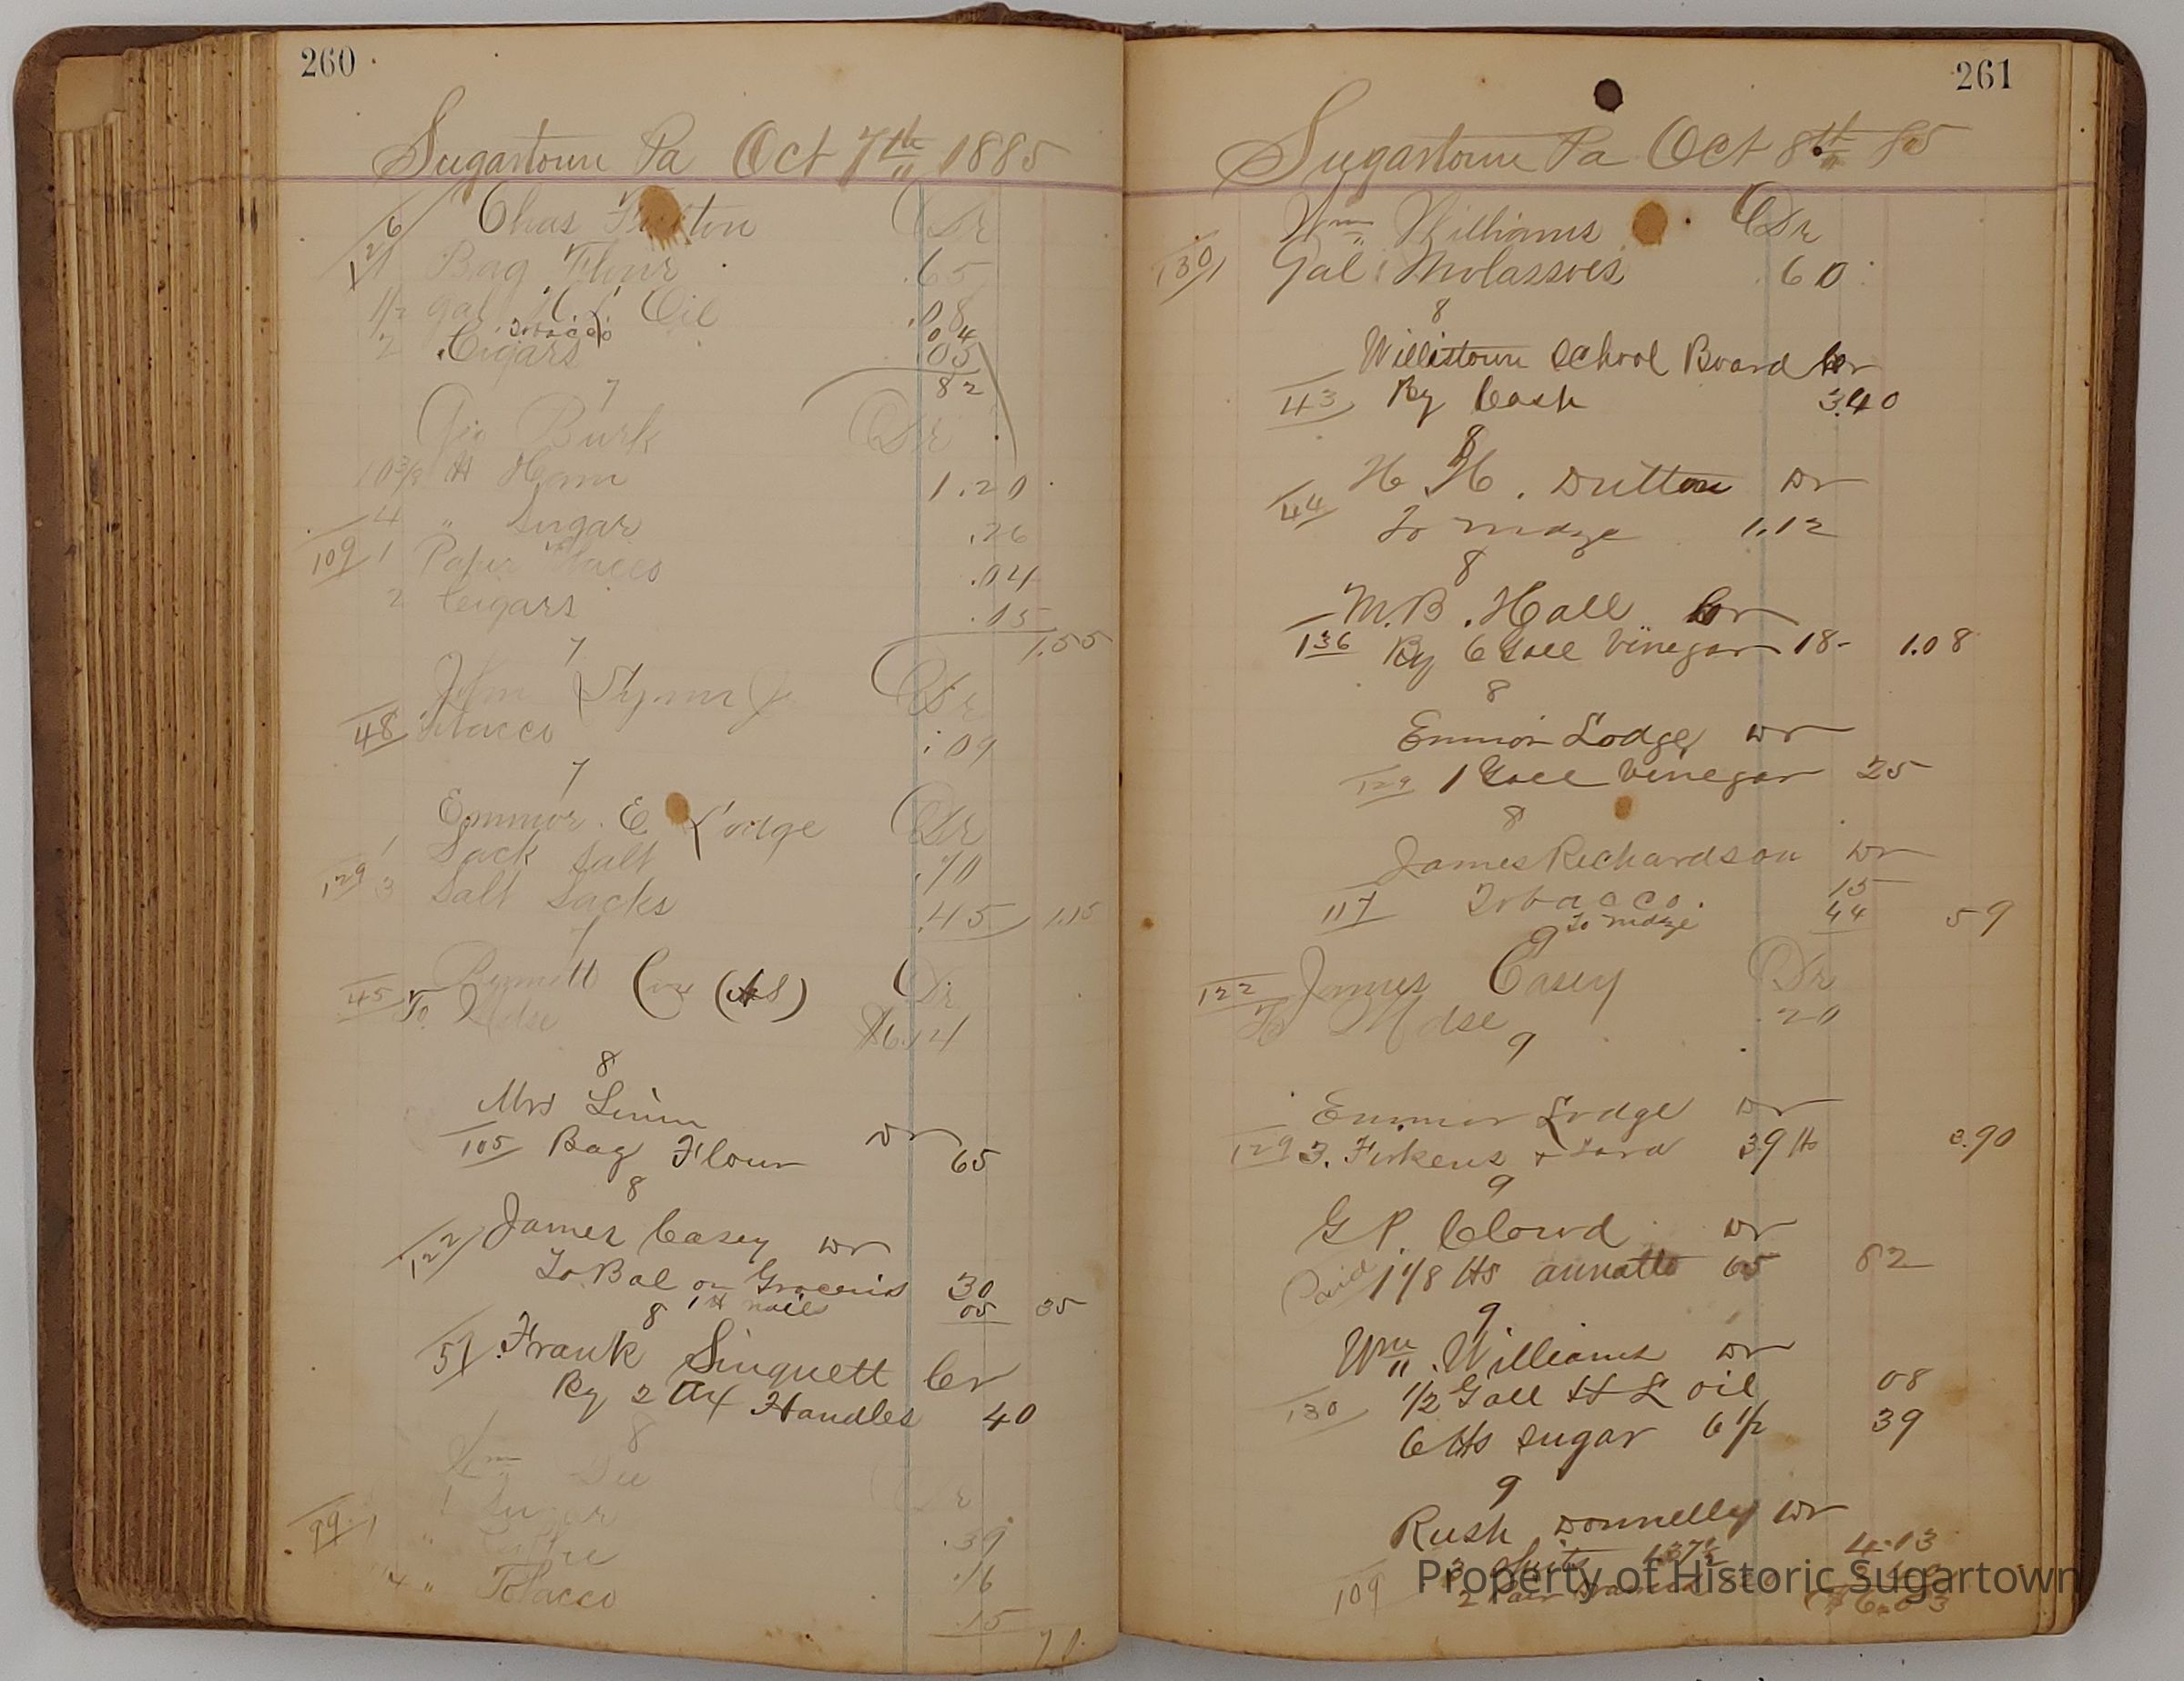 260
Sugartown Pa Oct 7th 1885
126 Chas ton Dr
1 Bag Flour .65
1/2 gal H. L. Oil .08
Tobacco 04
2 Cigars .05
82
7
Geo Burk Dr
10 3/8 H Ham 1.20
4 " Sugar .26
109 1 Paper .04
2 Cigars .05
1.55
7
John Dr
48 Tobacco .09
7
Emmor E Lodge Dr
1 Sack Salt .70
129 3 Salt Sacks .45 1.15
7
Bennett Dr
45 To Mdse $6.14
8
Mrs Linn
105 Bag Flour Dr 65
8
James Casey Dr
122 To Bal on Groceris 30
1 H nails 05 35
8
51 Frank Sinquett Cr
By 2 Ax Handles 40
8
Wm Dr
99 1 Sugar .39
" Coffee .16
1/4 " Tobacco .15
261
Sugartown Pa Oct 8th 85
Wm Williams Dr
130 1 Gal Molasses .60
8
Willistown School Board Cr
43 By Cash 3.40
8
H H. Dutton Dr
44 To mdze 1.12
8
M.B. Hall Cr
136 By 6 Gall Vinegar 18- 1.08
8
Emmor Lodge Dr
129 1 Gall Vinegar 25
8
James Richardson Dr
117 Tobacco. 15
To mdze 44 59
9
122 James Casey Dr
To Mdse .20
9
Emmor Lodge Dr
129 3. Firkens & Lard 39 H 3.90
9
G P. Clowd Dr
Paid 1 1/8 Hs annatto 65 82
9
Wm. Williams Dr
130 1/2 Gall H L oil 08
6 Hs sugar 6 1/2 39
9
Rush Donnelly Dr
109 3 1.37 1/2 4.13
2 Pair
Property of Historic Sugartown